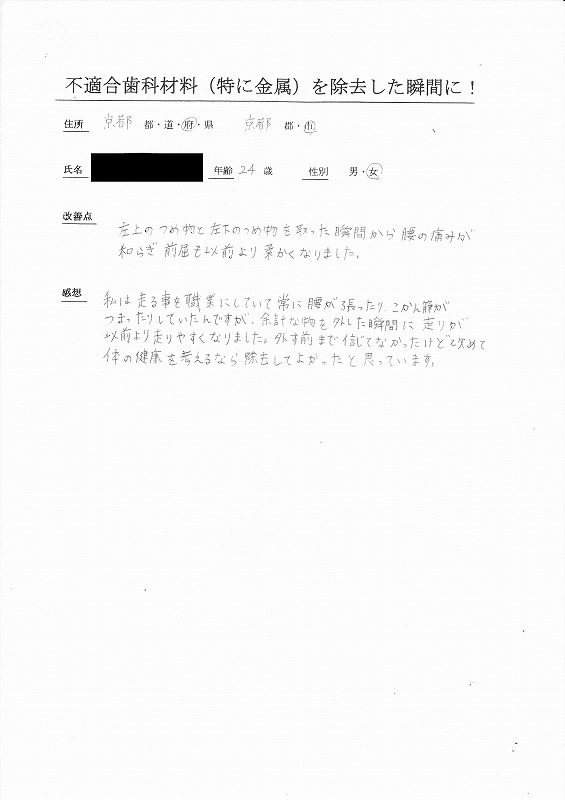 不適合歯科材料（特に金属）を除去した瞬間に！
住所 京都 都・道・府・県 京都 郡・市
氏名 年齢 24 歳 性別 男・女
改善点
左上のつめ物と左下のつめ物を取った瞬間から腰の痛みが
和らぎ前屈も以前より柔かくなりました。
感想
私は走る事を職業にしていて常に腰が張ったり、こかん節が
つまったりしていたんですが、余計な物を外した瞬間に走りが
以前より走りやすくなりました。外す前まで信じてなかったけど改めて
体の健康を考えるなら除去してよかったと思っています。